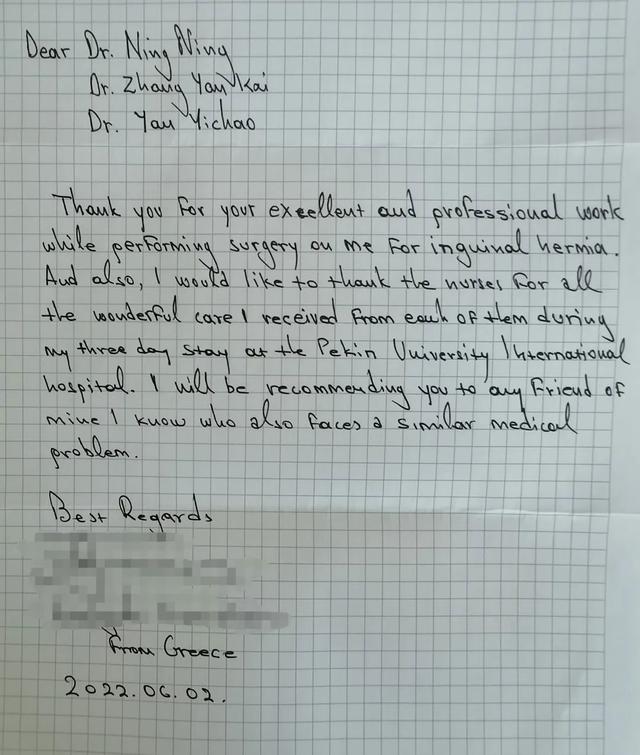 Dear Dr. Ning Ning
Dr. Zhang Yan Kai
Dr. Yan Yichao
Thank you for your excellent and professional work
while performing surgery on me for inguinal hernia.
And also, I would like to thank the nurses for all
the wonderful care I received from each of them during
my three day stay at the Pekin University International
hospital. I will be recommending you to any friend of
mine I know who also faces a similar medical
problem.
Best Regards
From Greece
2022.06.02.